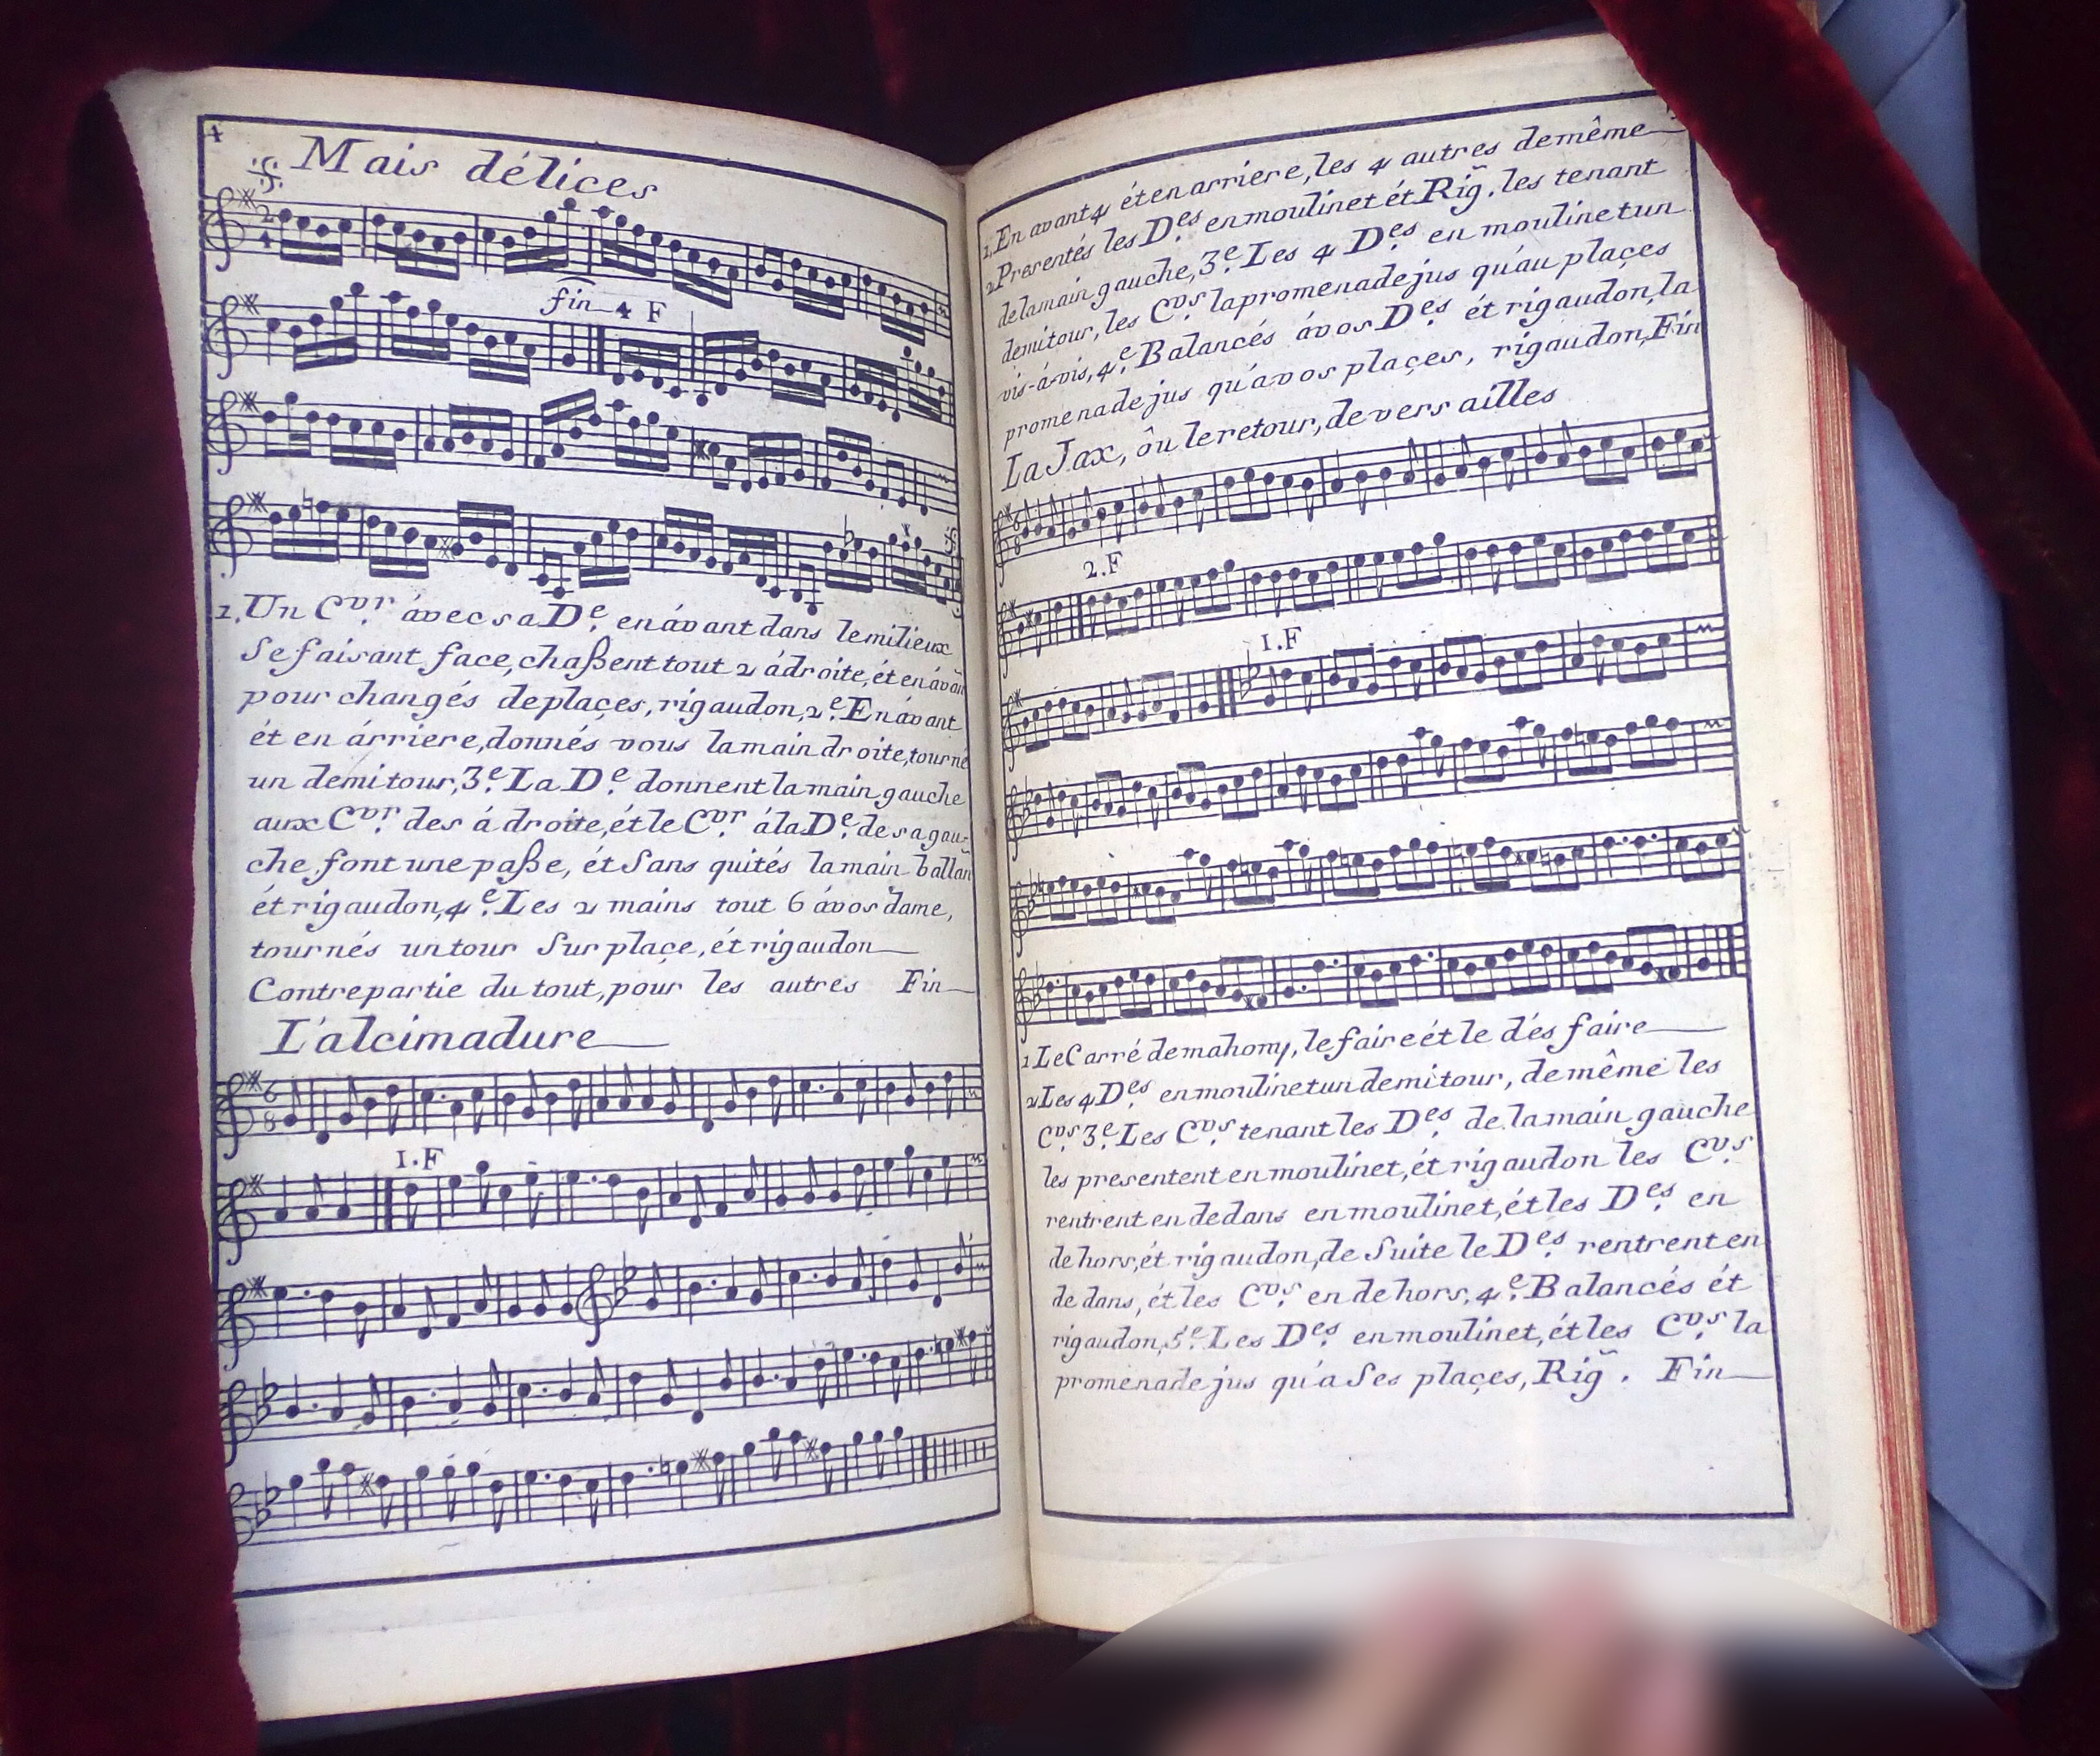 4
Mais délices
fin 4 F
1. Un Cvr. ávec sa De. en ávant dans le milieux
Se faisant face, chaßent tout 2 ádroite, ét en ávañ
pour changés de plaçes, rigaudon, 2e. En ávant
ét en árriere, donnés vous la main droite, tourné
un demi tour, 3e. La De. donnent la main gauche
aux Cvr. des á droite, ét le Cvr. á la De. de sa gau-
che. font une paße, ét Sans quités la main ballañ
ét rigaudon, 4e. Les 2 mains tout 6 ávos dame,
tournés un tour Sur plaçe, ét rigaudon
Contrepartie du tout, pour les autres Fin
L'alcimadure
1. F
1. En avant 4 ét en arriere, les 4 autres de même
2 Presentés les Des. en moulinet ét Rig̃. les tenant
de la main gauche, 3e. Les 4 Des. en moulinet un
demi tour, les Cvs. la promenade jus qu'au plaçes
vis-á-vis, 4e. Balancés ávos Des. ét rigaudon, la
promenade jus qu'avos plaçes, rigaudon, Fin
La Jax, ôu le retour, de versailles
2. F
1. F
1 Le Carré de mahony, le faire ét le dés faire
2 Les 4 Des. en moulinet un demi tour, de même les
Cvs. 3e. Les Cvs. tenant les Des. de la main gauche
les presentent en moulinet, ét rigaudon les Cvs.
rentrent en dedans en moulinet, ét les Des. en
de hors, ét rigaudon, de Suite le Des. rentrent en
de dans, ét les Cvs. en de hors, 4e. Balancés ét
rigaudon, 5e. Les Des. en moulinet, ét les Cvs. la
promenade jus qu'a Ses plaçes, Rig̃. Fin